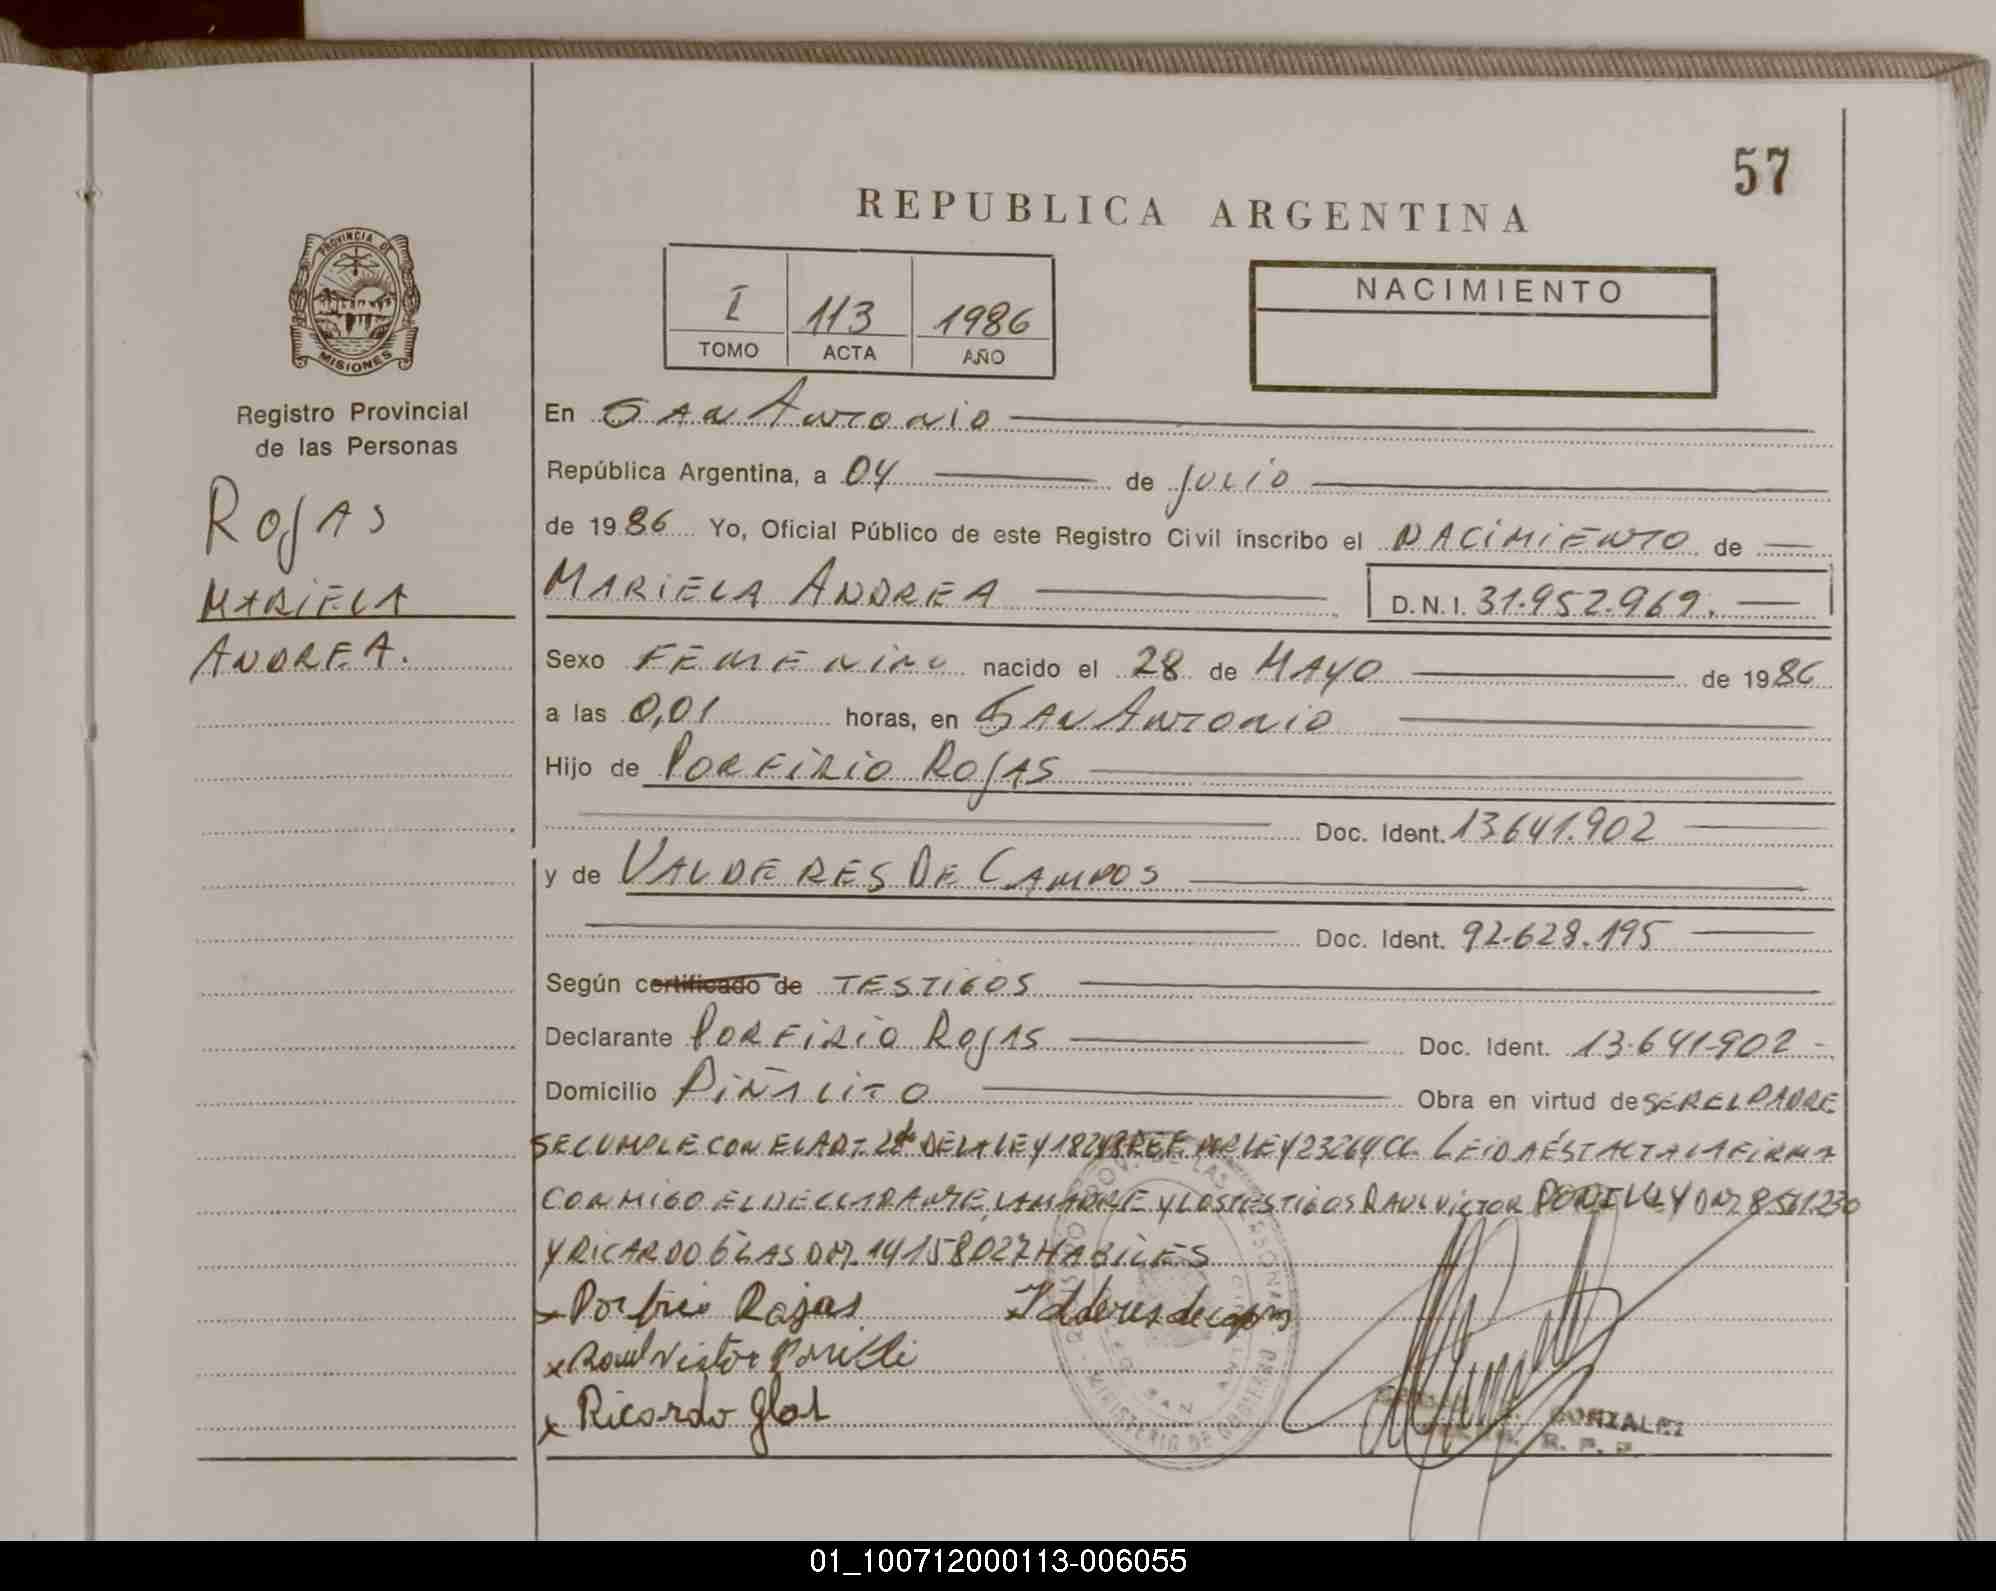 57
REPUBLICA ARGENTINA
PROVINCIA DE
MISIONES
Registro Provincial
de las Personas
ROJAS
MARIELA
ANDREA.
I 113 1986
TOMO ACTA AÑO
NACIMIENTO
En SAN ANTONIO
República Argentina, a 04 de JULIO
de 1986 Yo, Oficial Público de este Registro Civil inscribo el NACIMIENTO de
MARIELA ANDREA D.N.I. 31.952.969.
Sexo FEMENINO nacido el 28 de MAYO de 1986
a las 0,01 horas, en SAN ANTONIO
Hijo de PORFIRIO ROJAS
Doc. Ident. 13.641.902
y de VALDERES DE CAMPOS
Doc. Ident. 92.628.195
Según certificado de TESTIGOS
Declarante PORFIRIO ROJAS Doc. Ident. 13.641.902
Domicilio PIÑALITO Obra en virtud de SER EL PADRE
SE CUMPLE CON EL ART. DE LA LEY 18248 REF. POR LEY 23264 LEIDA ÉSTA ACTA LA FIRMA
CONMIGO EL DECLARANTE, LA MADRE Y LOS TESTIGOS RAUL VICTOR DNI 8561230
Y RICARDO GLAS DNI. 14158027 HABILES
x Porfirio Rojas Valderes de
x Raul Victor
x Ricardo Glas
MINISTERIO DE GOBIERNO
GONZALEZ
R. P. P.
01_100712000113-006055